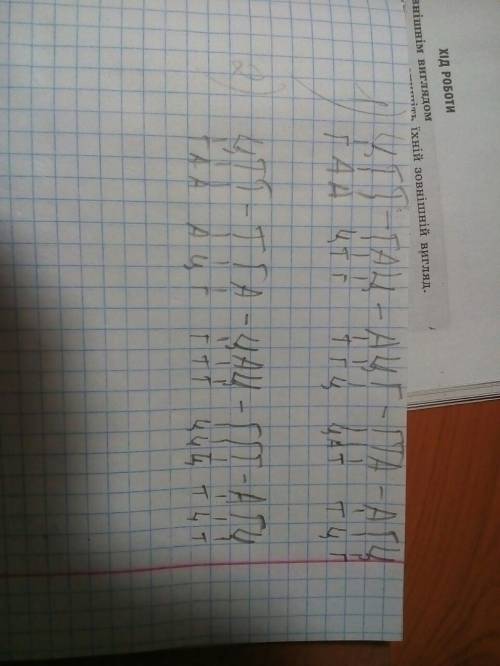 ХІД РОБОТИ
внішнім виглядом
їхній зовнішній вигляд.
1) ЦТТ - ГАЦ - АЦГ - ГТА - АГЦ
ГАА ЦТГ ТГЦ ЦАТ ТЦГ
2) ЦТТ - ТГА - ЦАЦ - ГГГ - АГЦ
ГАА АЦГ ГТГ ЦЦЦ ТЦТ